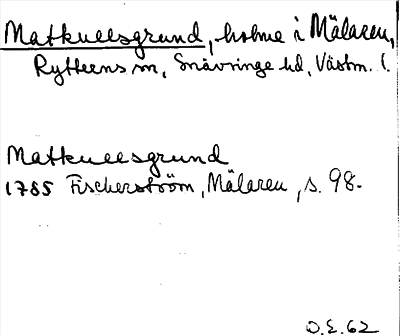 Matkullsgrund, holme i Mälaren,
Rytterns sn, Snävringe hd, Västm. l.
Matkullsgrund
1785 Fischerström, Mälaren, s. 98.
O.E. 62